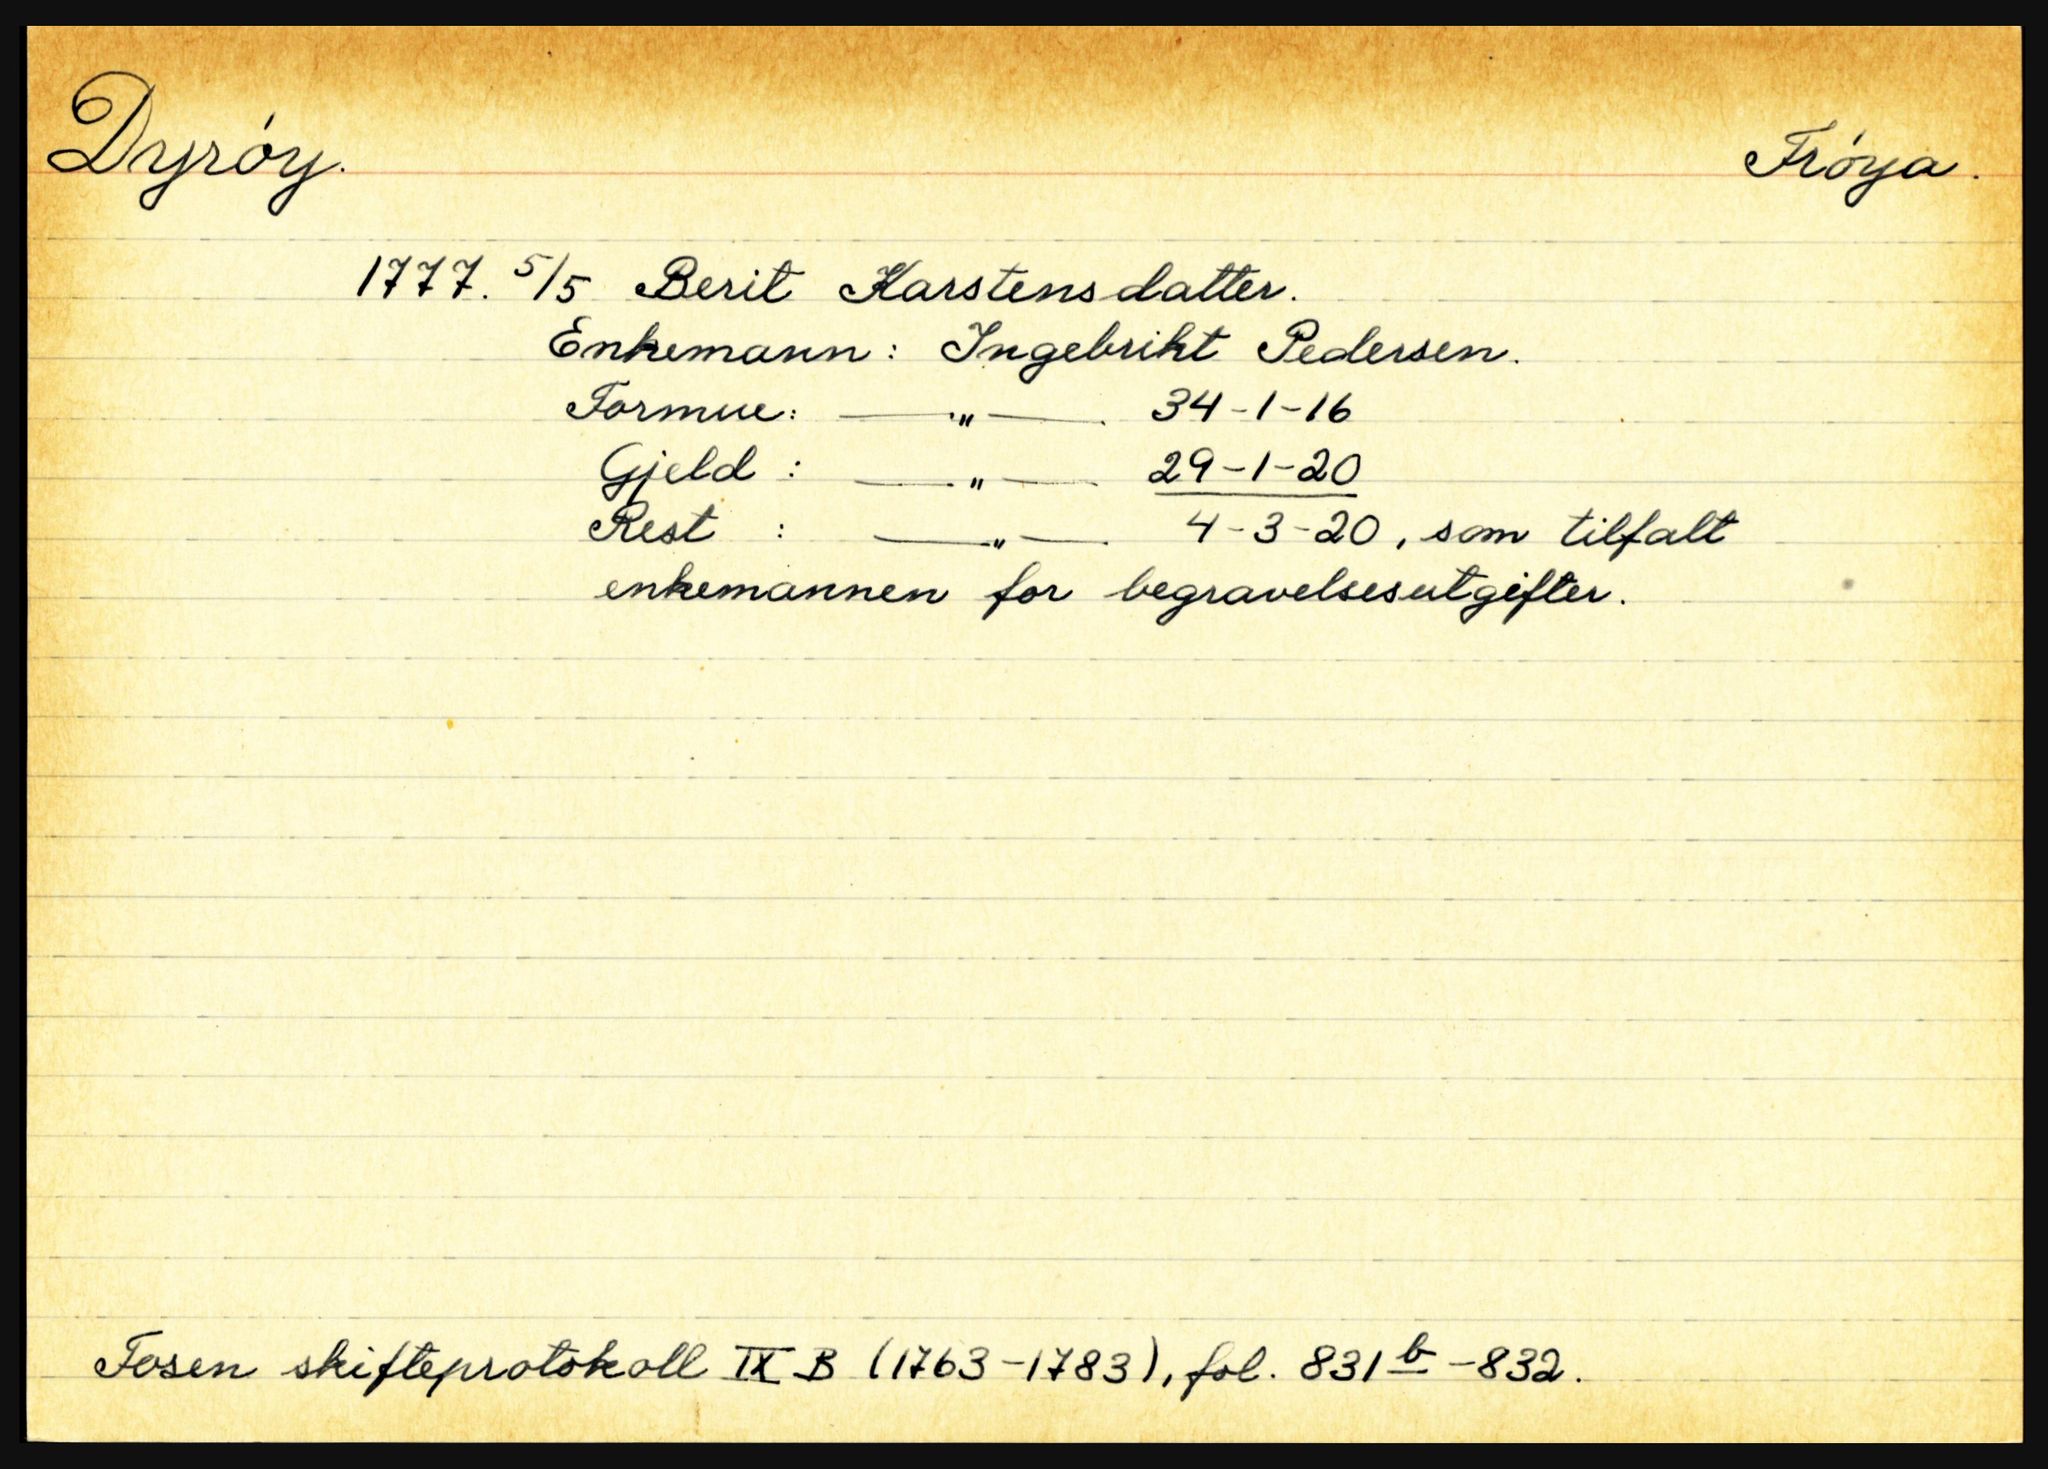 Dyróy. Fróya.
1777. 5/5 Berit Karstensdatter.
Enkemann: Ingebrikt Pedersen.
Formue: —„— 34-1-16
Gjeld : —„— 29-1-20
Rest : —„— 4-3-20, som tilfalt
enkemannen for begravelsesutgifter.
Fosen skifteprotokoll IX B (1763-1783), fol. 831 b -832.